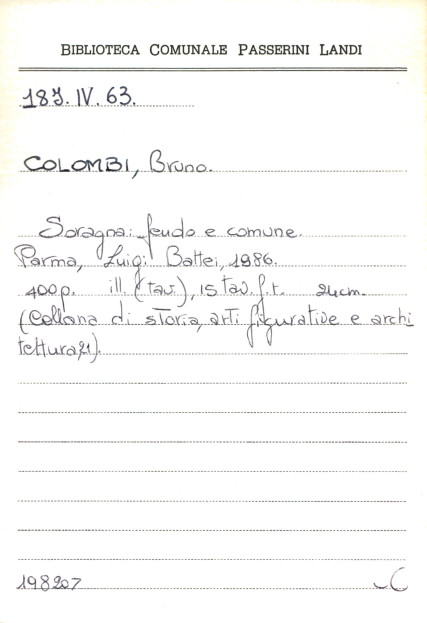 BIBLIOTECA COMUNALE PASSERINI LANDI
187.IV.63.
COLOMBI, Bruno.
Soragna: feudo e comune.
Parma, Luigi Battei, 1986.
400p. ill. (tav.), 15 tav. f.t. 24cm.
(Collana di storia, arti figurative e archi
tettura,21).
198207